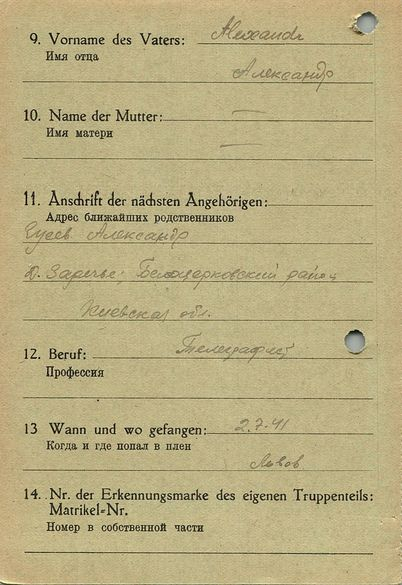 9. Vorname des Vaters: Alexandr
Имя отца
Александр
10. Name der Mutter: —
Имя матери
—
11. Anschrift der nächsten Angehörigen:
Адрес ближайших родственников
Гусев Александр
д. Заречье Белоцерковский район
Киевская обл.
12. Beruf: Телеграфист
Профессия
13 Wann und wo gefangen: 2.7.41
Когда и где попал в плен
Львов
14. Nr. der Erkennungsmarke des eigenen Truppenteils:
Matrikel=Nr.
Номер в собственной части